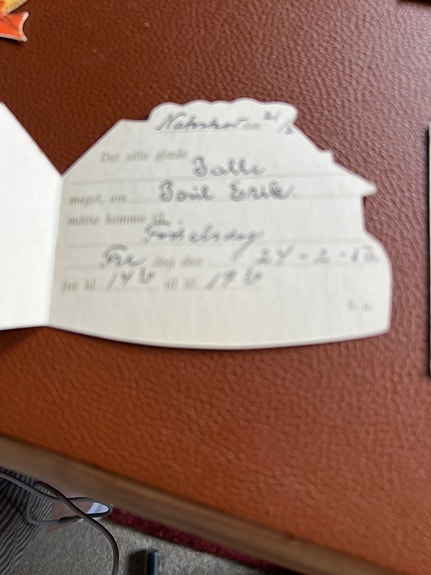 Det ville glæde
Palle
meget, om Poul Erik
måtte komme til
Fødselsdag
Fre dag den 24-2-
fra kl. 14 til kl. 19
S. u.